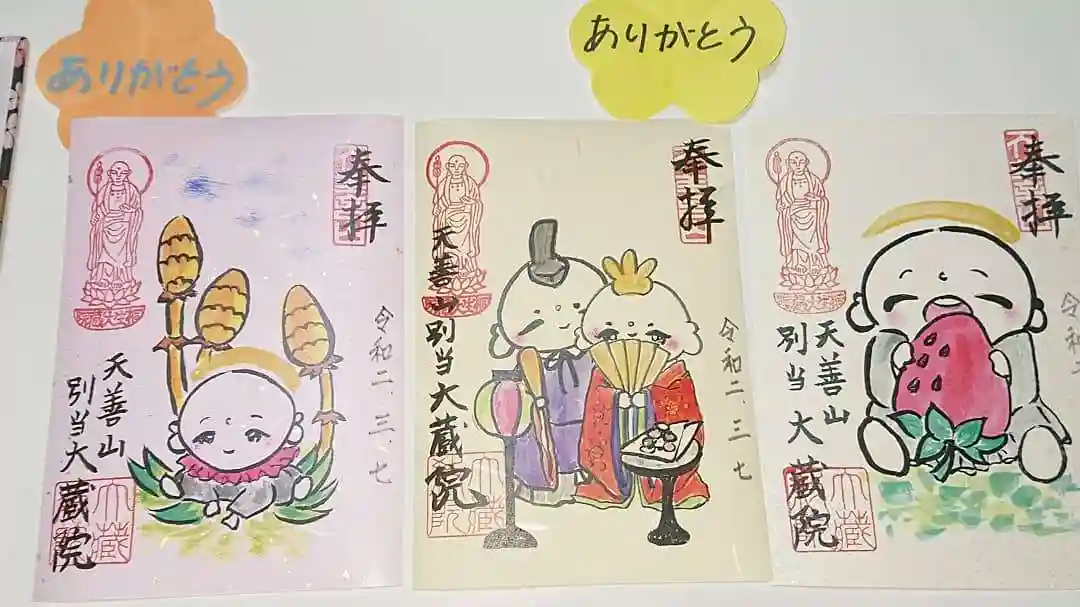 ありがとう
ありがとう
奉拝
令和二、三、七
天善山
別当大蔵院
奉拝
令和二、三、七
天善山別当大蔵院
奉拝
令和二
天善山
別当大蔵院